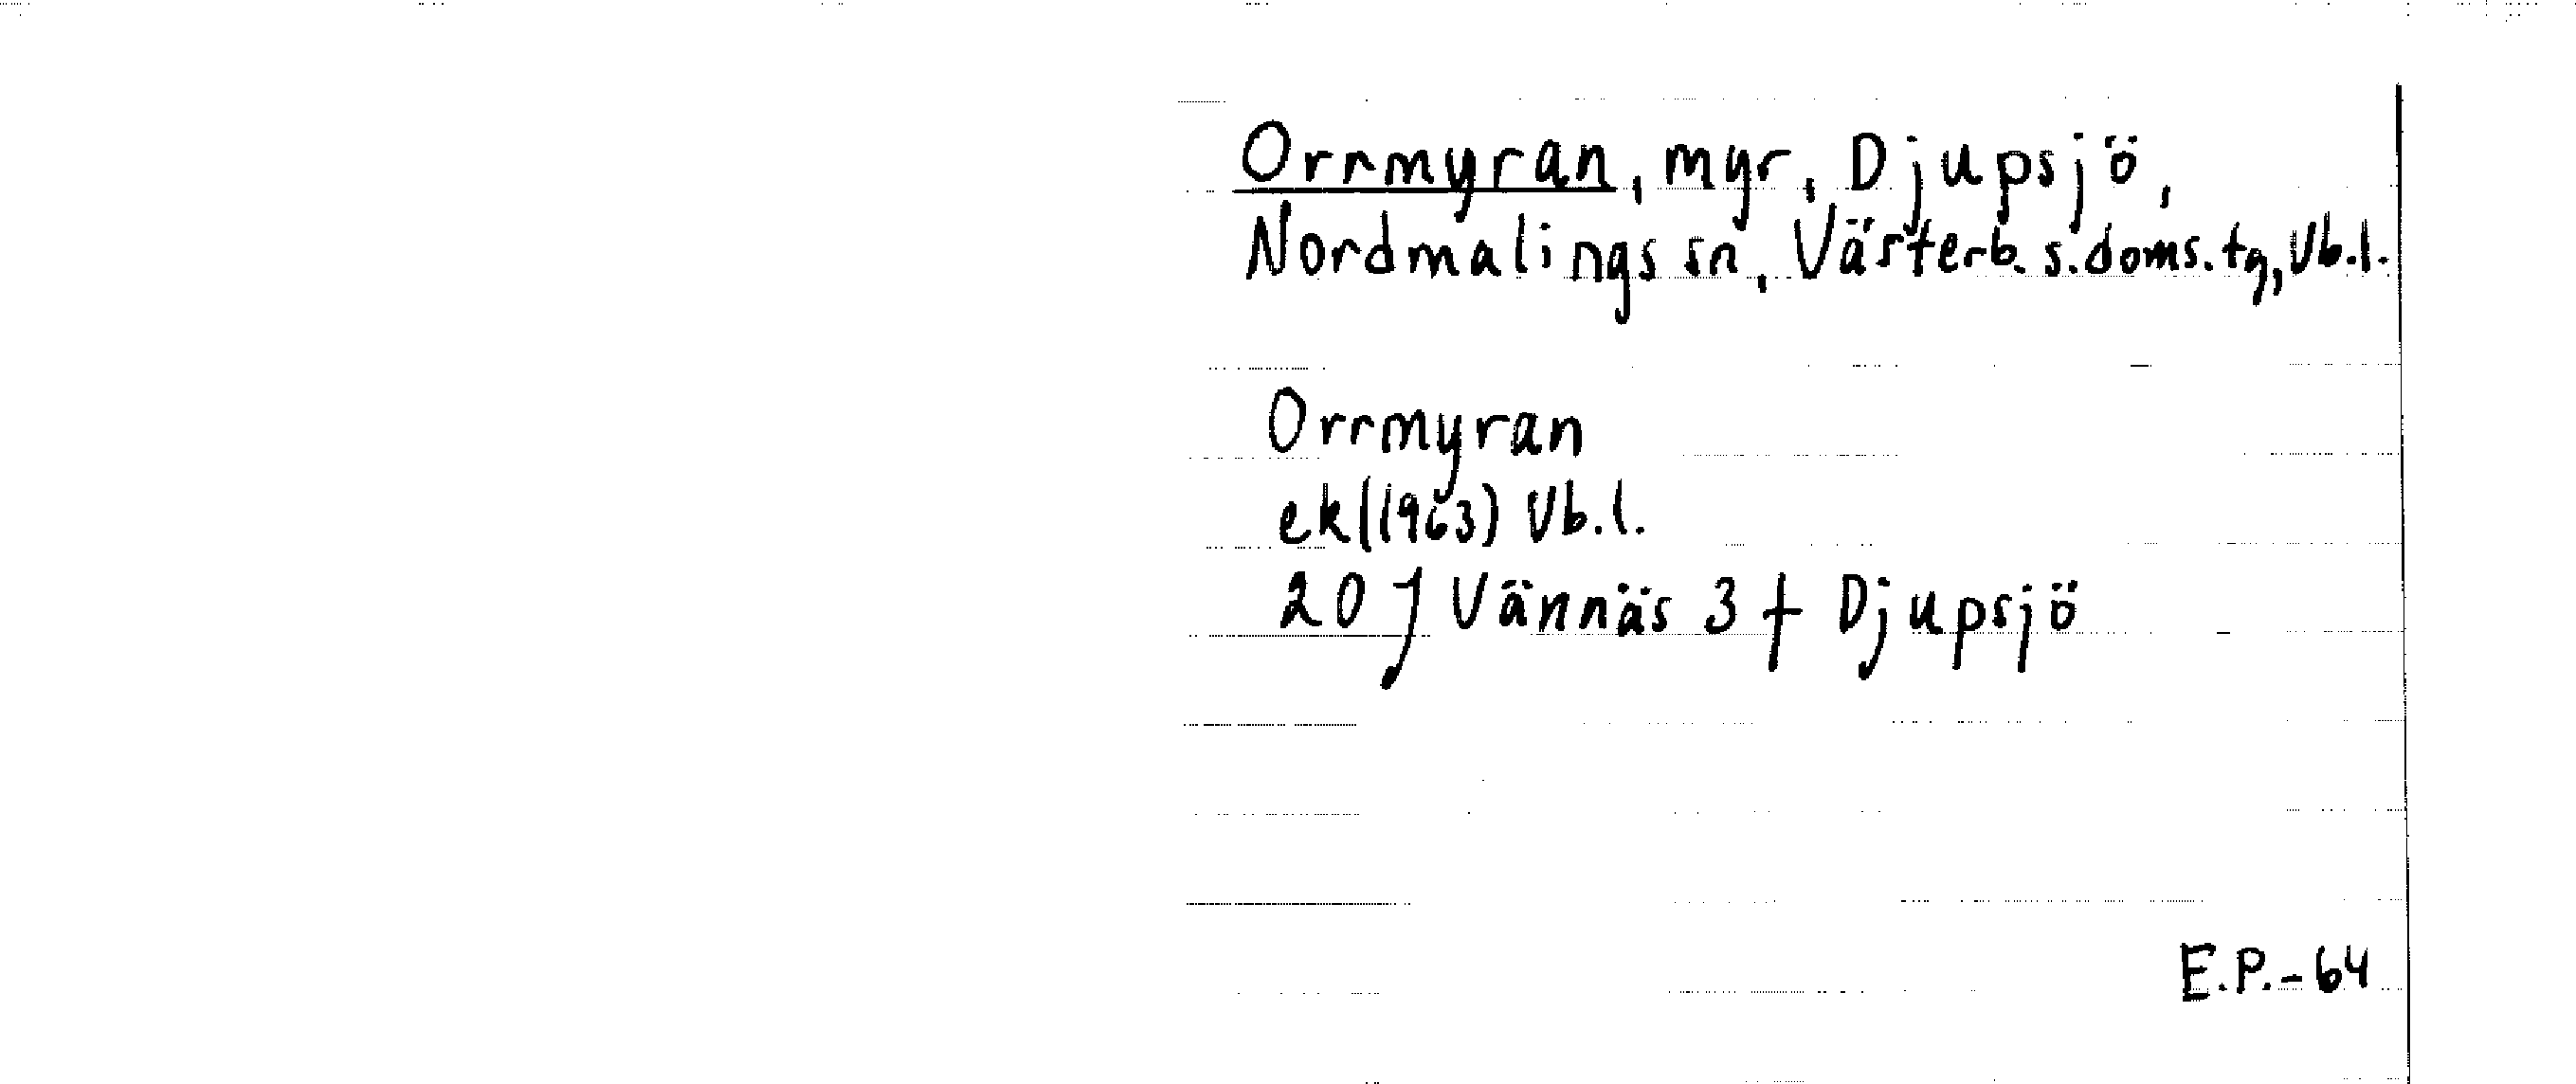 Orrmyran, myr, Djupsjö,
Nordmalings sn, Västerb. s. doms. tg, Vb. l.
Orrmyran
ek (1963) Vb. l.
20 J Vännäs 3 f Djupsjö
E.P.-64